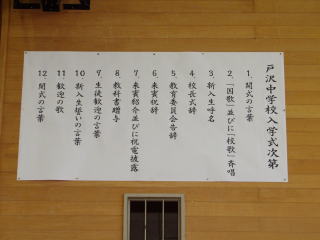 戸沢中学校入学式次第
1. 開式の言葉
2. 「国歌」並びに「校歌」斉唱
3. 新入生呼名
4. 校長式辞
5. 教育委員会告辞
6. 来賓祝辞
7. 来賓紹介並びに祝電披露
8. 教科書贈与
9. 生徒歓迎の言葉
10. 新入生誓いの言葉
11. 歓迎の歌
12. 閉式の言葉